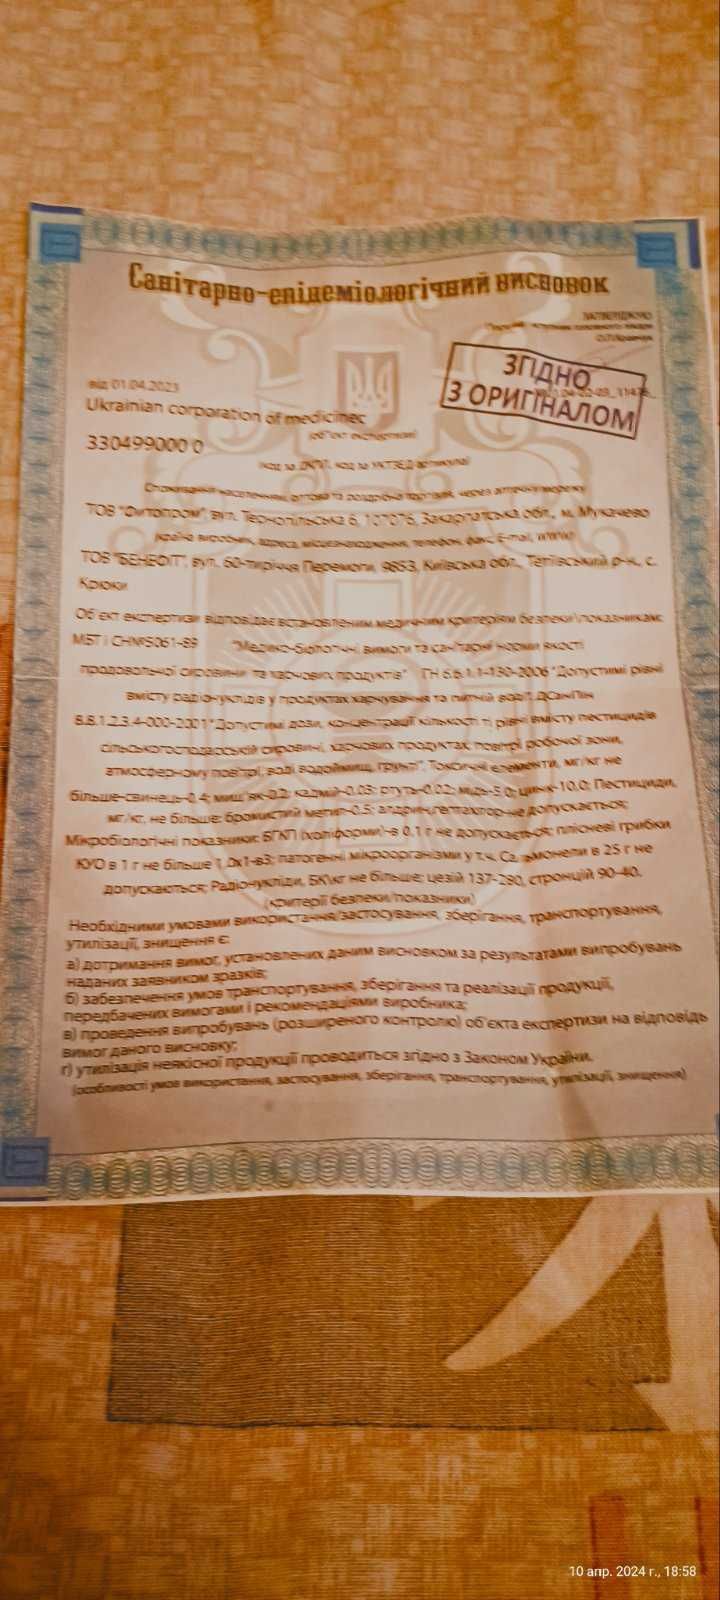 Санітарно-епідеміологічний висновок
ЗАТВЕРДЖУЮ
головного лікаря
ЗГІДНО
З ОРИГІНАЛОМ
від 01.04.2023
Ukrainian corporation of medicinec
(об"єкт експертизи)
330499000 0
(код за ДКПП, код за УКТЗЕД артикула)
Споживання населенням, оптова та роздрібна торгівля, через аптечну мережу
ТОВ "Фитопром", вул. Тернопільська 6, 107076, Закарпатська обл., м. Мукачево
країна виробник, адреса, місцезнаходження, телефон, факс, E-mail, WWW)
ТОВ "БЕНЕФІТ", вул. 60-тиріччя Перемоги, 9853, Київська обл., Тетіівський р-н., с.
Крюки
Об'єкт експертизи відповідає встановленим медичним критеріям безпеки\показникам:
МБТ і СН№5061-89 "Медико-біологічні вимоги та санітарні норми якості
продовольчої сировини та харчових продуктів" ГН 6.6.1.1-130-2006 "Допустимі рівні
вмісту радіонуклідів у продуктах харчування та питній воді", ДСанПін
8.8.1.2.3.4-000-2001 "Допустимі дози, концентрації кількості ті рівні вмісту пестицидів
сільськогосподарській сировині, харчових продуктах, повітрі робочої зони,
атмосферному повітрі, воді водоймищ, грунті", Токсичні елементи, мг/кг не
більше-свинець-0,4; миш'як-0,2; кадмій-0,03; ртуть-0,02; мідь-5,0; цинк-10,0; Пестициди,
мг/кг, не більше: бромистий метил-0,5; алдрин,гептахлор-не допускається;
Мікробіологічні показники: БГКП (коліформи)-в 0,1 г не допускається; плісневі грибки
КУО в 1 г не більше 1,0х1-в3; патогенні мікроорганізми у т.ч. Сальмонели в 25 г не
допускаються; Радіонукліди, БК\кг не більше: цезій 137-280, стронцій 90-40.
(критерії безпеки/показники)
Необхідними умовами використання/застосування, зберігання, транспортування,
утилізації, знищення є:
а) дотримання вимог, установлених даним висновком за результатами випробувань
наданих заявником зразків;
б) забезпечення умов транспортування, зберігання та реалізації продукції,
передбачених вимогами і рекомендаціями виробника;
в) проведення випробувань (розширеного контролю) об'єкта експертизи на відповідь
вимог даного висновку;
г) утилізація неякісної продукції проводиться згідно з Законом України.
(особливості умов використання, застосування, зберігання, транспортування, утилізації, знищення)
10 апр. 2024 г., 18:58